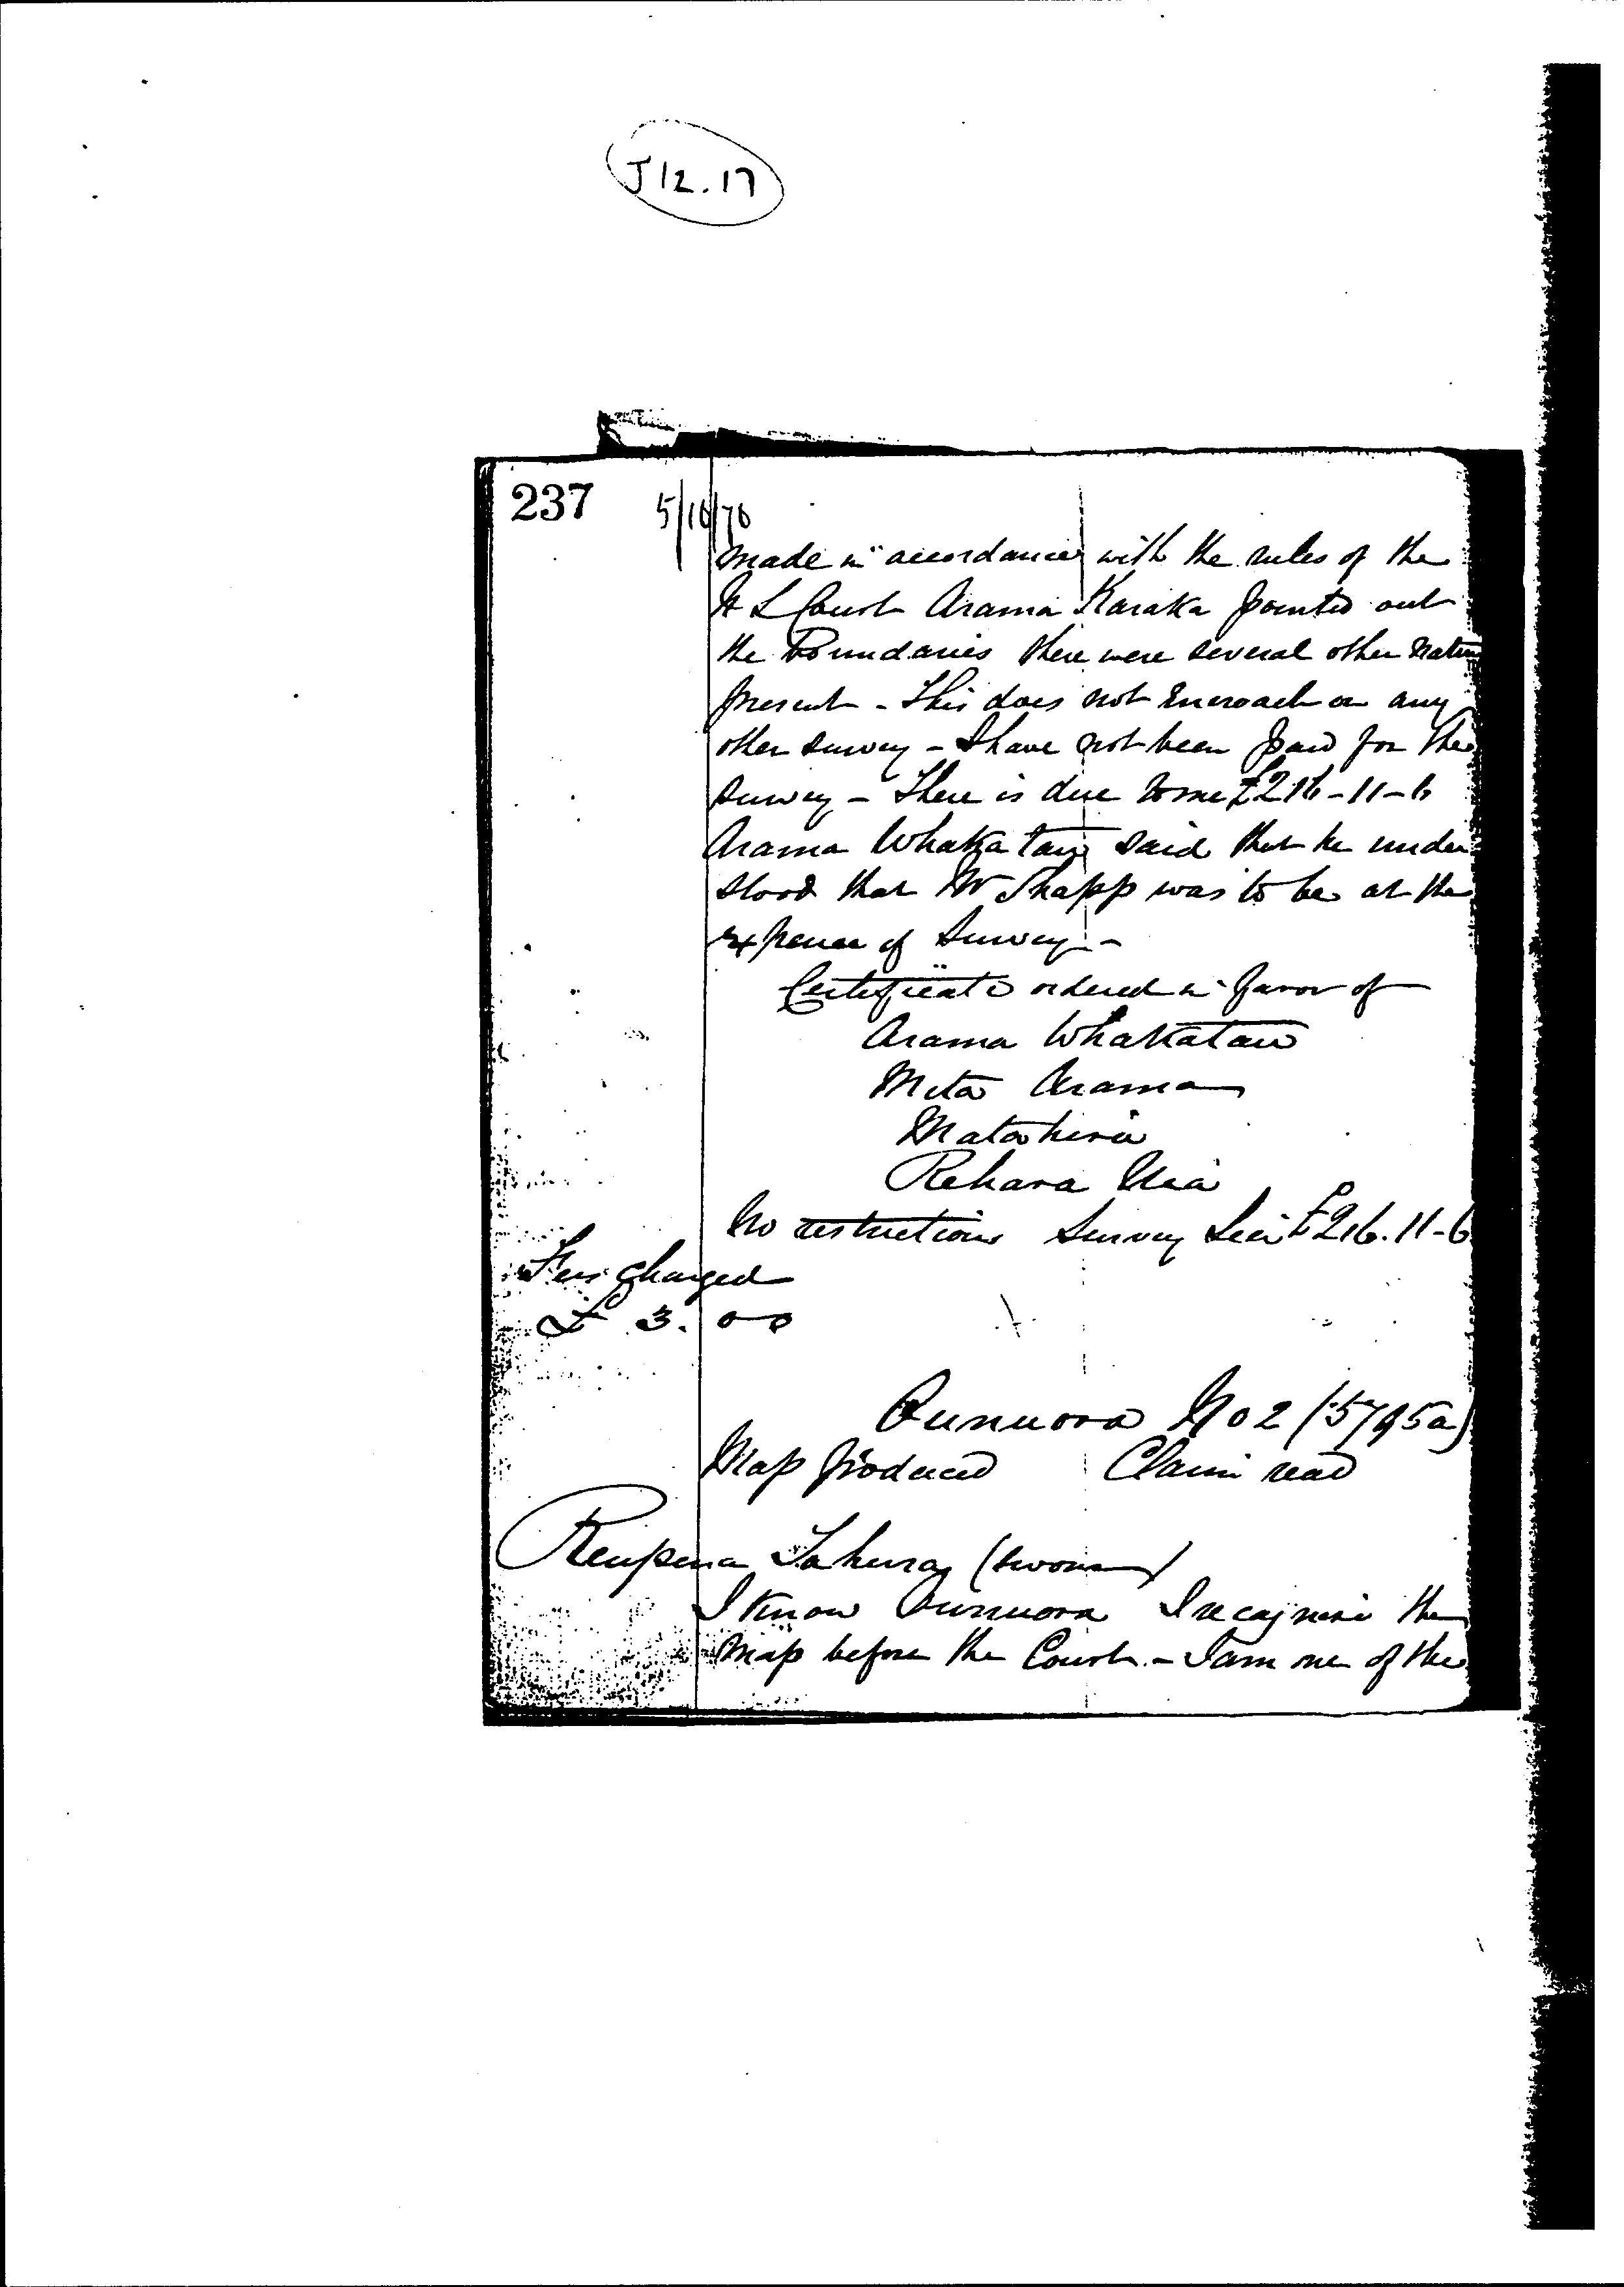 J12.17
237 5/10/76
made in accordance with the rules of the
N L Court Arama Karaka pointed out
the Boundaries there were several other Natives
present - This does not encroach on any
other survey - I have not been paid for the
survey - There is due to me £216-11-6
Arama Whakatau said that he under
stood that Mr was to be at the
expence of Survey -
Certificate ordered in favor of
Arama Whakatau
Meta Arama
Matahira
Rehara
No restrictions Survey Lien £216.11-6
Fees charged
£ 3. 0 0
Punuora No 2 (5795a)
Map produced Claim read
Reupena Tahura (sworn)
I know Punuora I recognise the
map before the Court - I am one of the